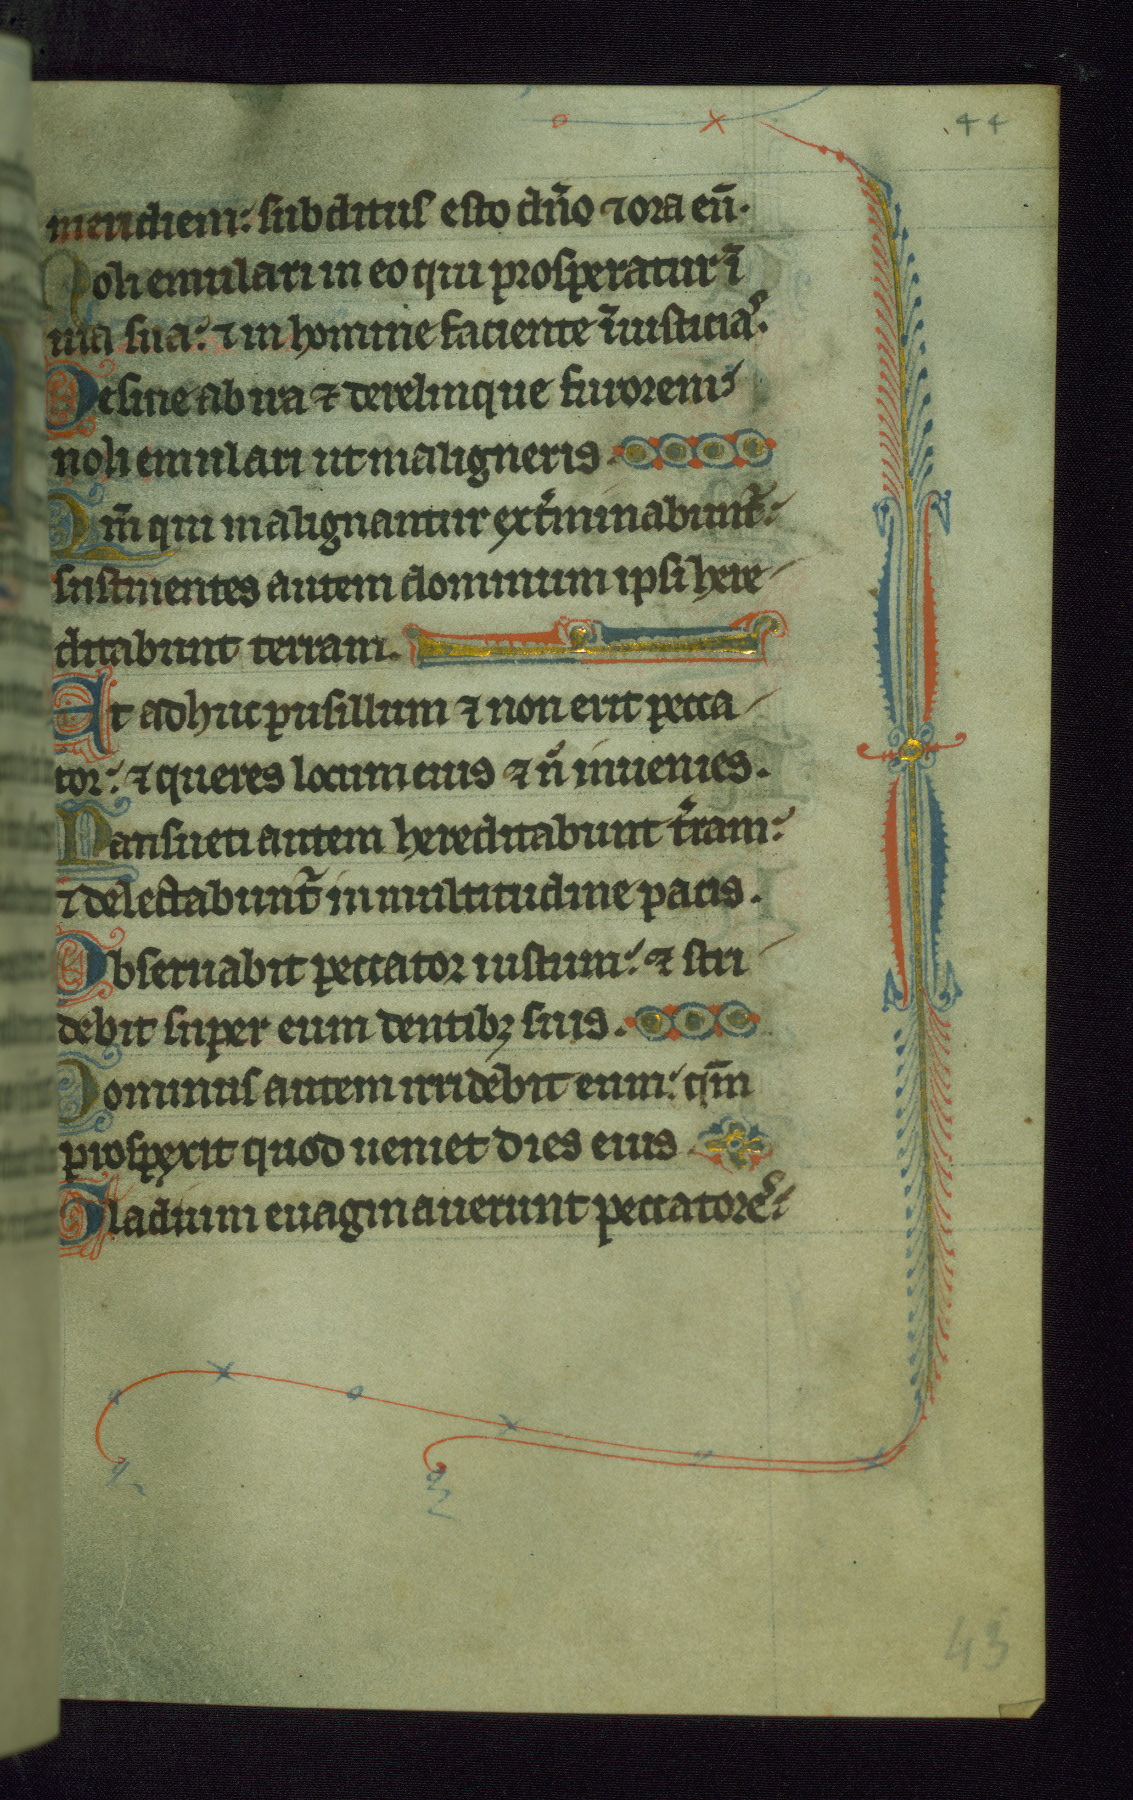 44
meridiem: subditus esto dño ⁊ ora eū.
Noli emulari in eo qui prosperatur ī
uia sua: ⁊ in homine faciente īiusticias.
Desine ab ira ⁊ derelinque furorem:
noli emulari ut maligneris.
Qm̄ qui malignantur ext̄minabunt̄:
sustinentes autem dominum ipsi here
ditabunt terram.
Et adhuc pusillum ⁊ non erit pecca
tor: ⁊ queres locum eius ⁊ n̄ inuenies.
Mansueti autem hereditabunt t̄ram:
⁊ delectabunt̄ in multitudine pacis.
Obseruabit peccator iustum: ⁊ stri
debit super eum dentibꝫ suis.
Dominus autem irridebit eum: qm̄
prospexit quod ueniet dies eius.
Gladium euaginauerunt peccatores:
43